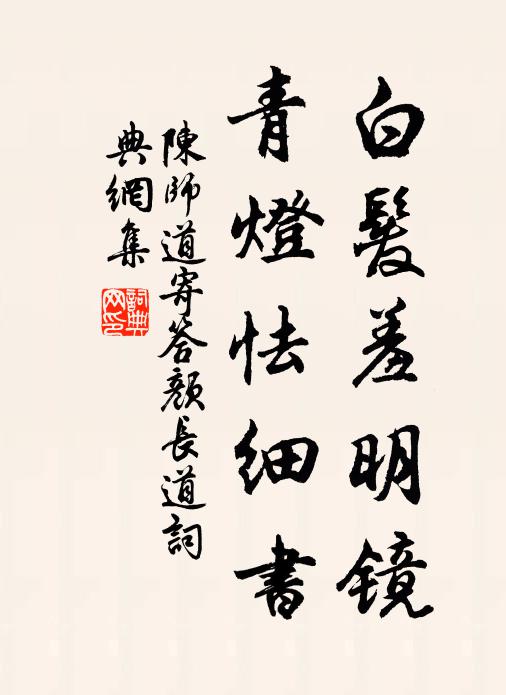 白髮羞明鏡
青燈怯細書
陳師道寄答顏長道詞
典網集
詞典網印